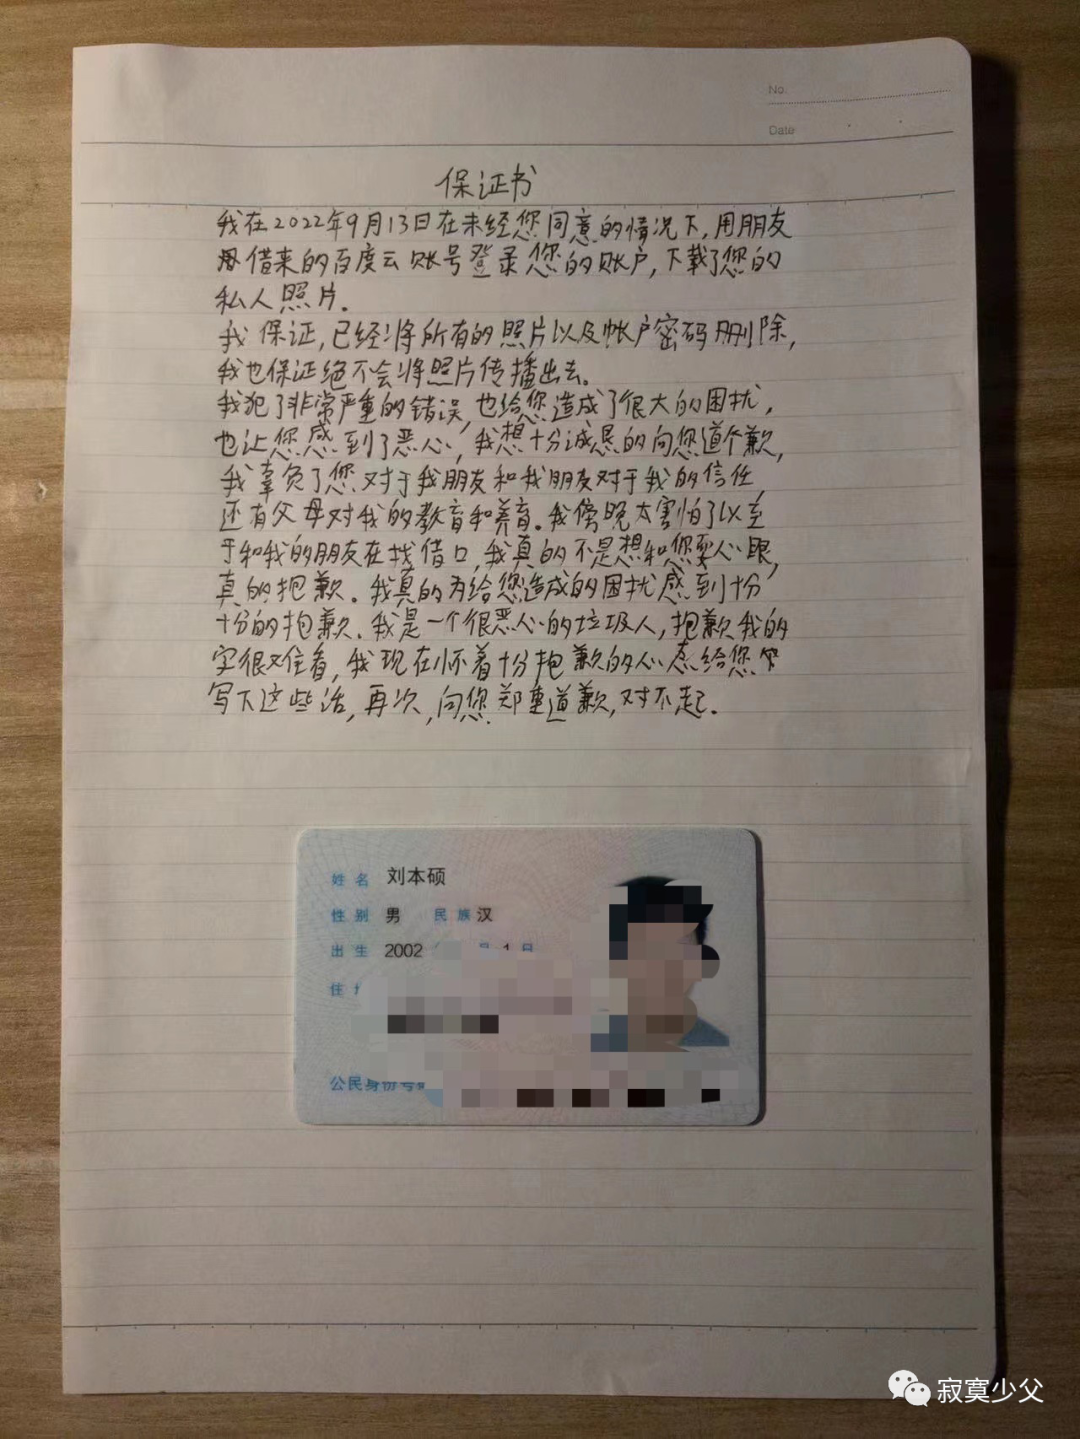 No
Date
保证书
我在2022年9月13日在未经您同意的情况下,用朋友
借来的百度云账号登录您的账户,下载了您的
私人照片.
我保证,已经将所有的照片以及帐户密码删除,
我也保证绝不会将照片传播出去。
我犯了非常严重的错误,也给您造成了很大的困扰,
也让您感到了恶心,我想十分诚恳的向您道个歉,
我辜负了您对于我朋友和我朋友对于我的信任
还有父母对我的教育和养育。我傍晚太害怕了以至
于和我的朋友在找借口,我真的不是想和您耍心眼,
真的抱歉。我真的为给您造成的困扰感到十分
十分的抱歉.我是一个很恶心的垃圾人,抱歉我的
字很难看,我现在怀着十分抱歉的心态给您
写下这些话,再次,向您郑重道歉,对不起.
姓名 刘本硕
性别 男 民族 汉
出生 2002 月 1 日
住
公民身份号
寂寞少父